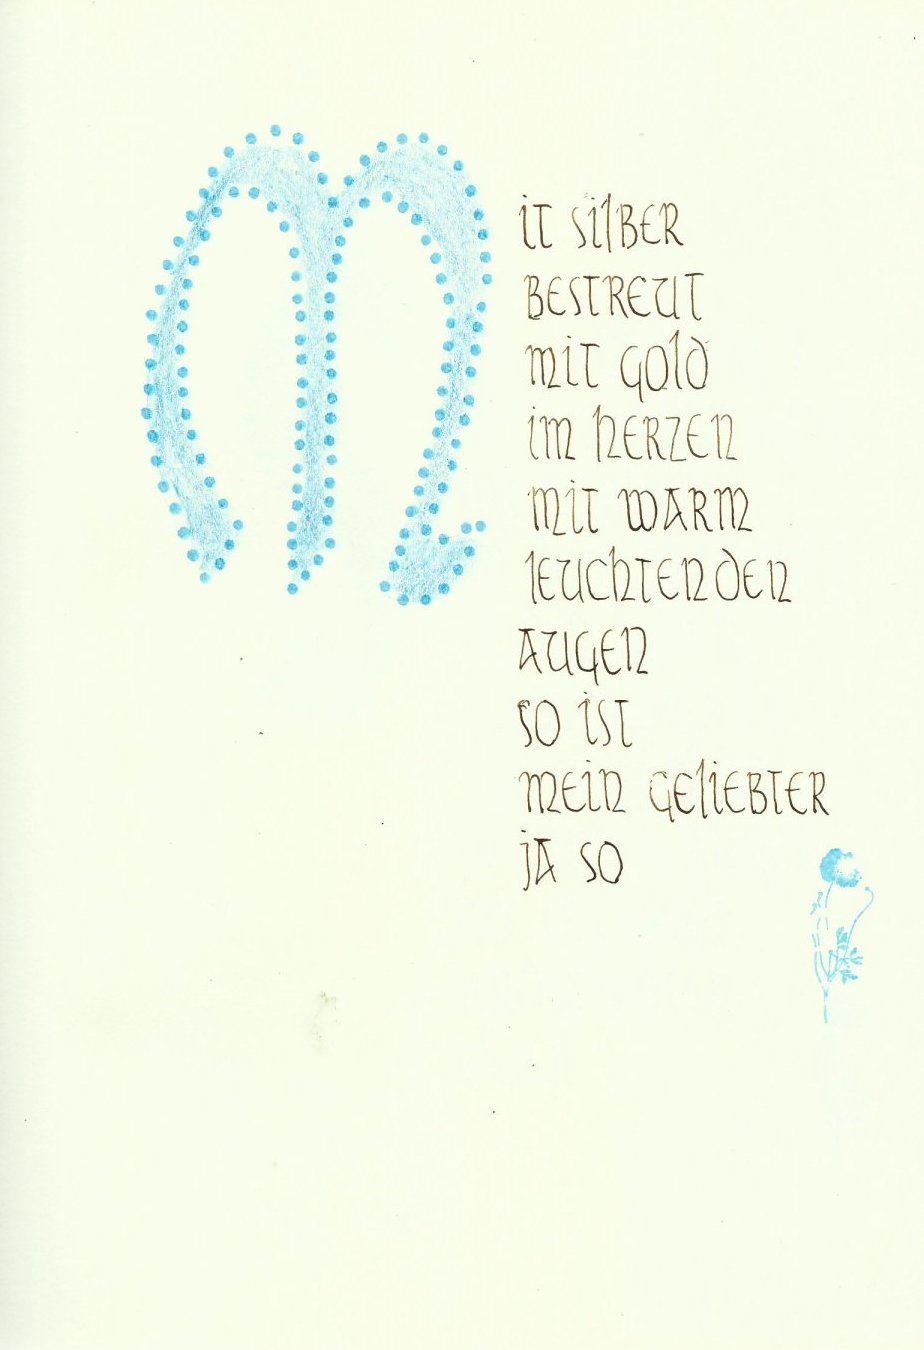 Mit silBER
BESTREUT
mit Gold
im hERZEN
mit WARM
lEUchTENdEN
AUGEN
SO iST
mEiN GEliEBTER
jA SO